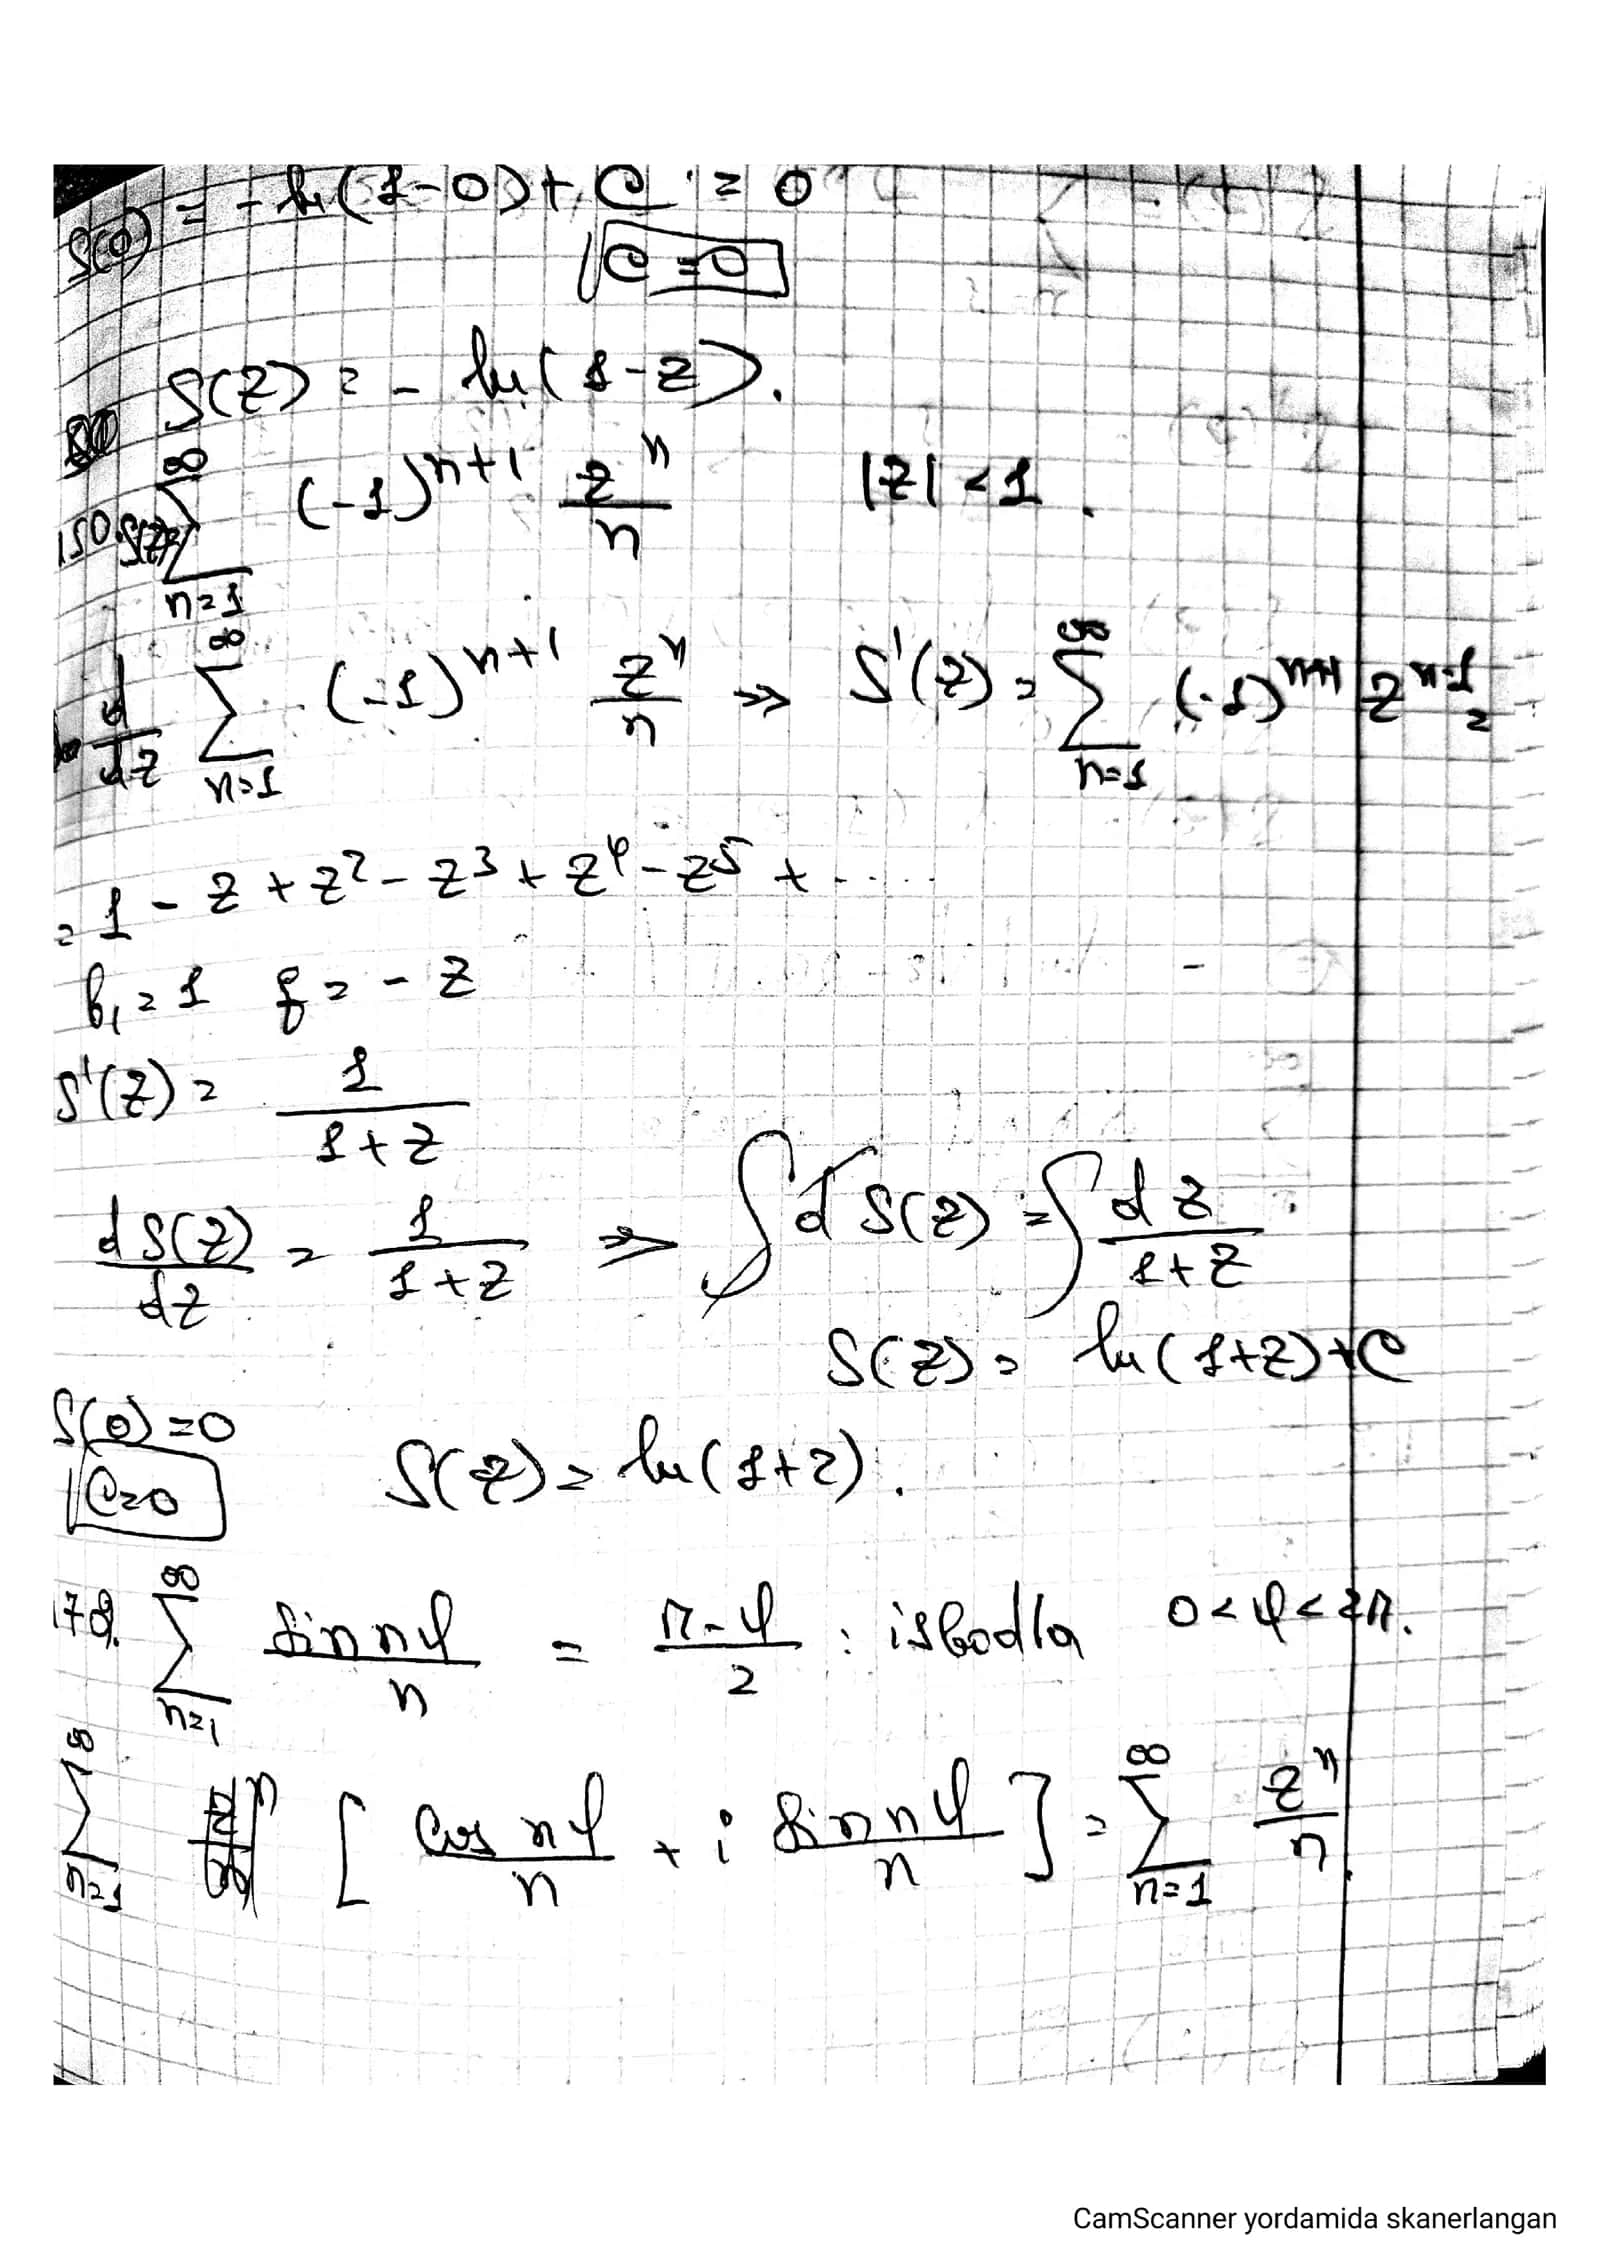 S(0) = - ln(1-0) + C = 0
C = 0
S(z) = - ln(1-z).
150. S(z) = ∑_{n=1}^{∞} (-1)^{n+1} z^n/n |z| < 1.
d/dz ∑_{n=1}^{∞} (-1)^{n+1} z^n/n ⇒ S'(z) = ∑_{n=1}^{∞} (-1)^{n+1} z^{n-1} =
= 1 - z + z^2 - z^3 + z^4 - z^5 + .....
b_1 = 1 q = - z
S'(z) = 1/(1+z)
dS(z)/dz = 1/(1+z) ⇒ ∫ d S(z) = ∫ dz/(1+z)
S(z) = ln(1+z) + C
S(0) = 0
C = 0 S(z) = ln(1+z).
∑_{n=1}^{∞} sin nφ/n = (π-φ)/2 : isbodla 0 < φ < 2π.
∑_{n=1}^{∞} [cos nφ/n + i sin nφ/n] = ∑_{n=1}^{∞} z^n/n
CamScanner yordamida skanerlangan